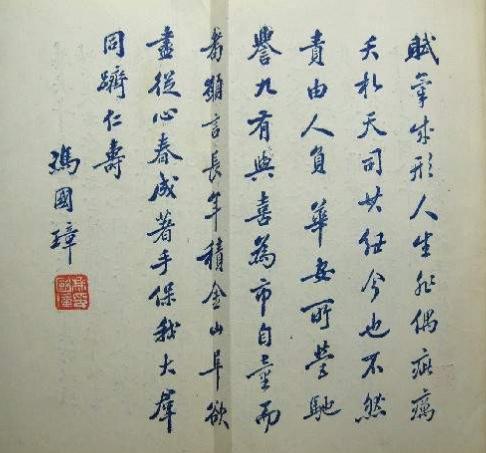 賦氣成形人生非偶疵癘
夭札天司其紐今也不然
責由人負華安所營馳
譽九有與喜為市自童而
耇願言長年積金山阜欲
盡從心春成著手保我大羣
同躋仁壽
馮國璋